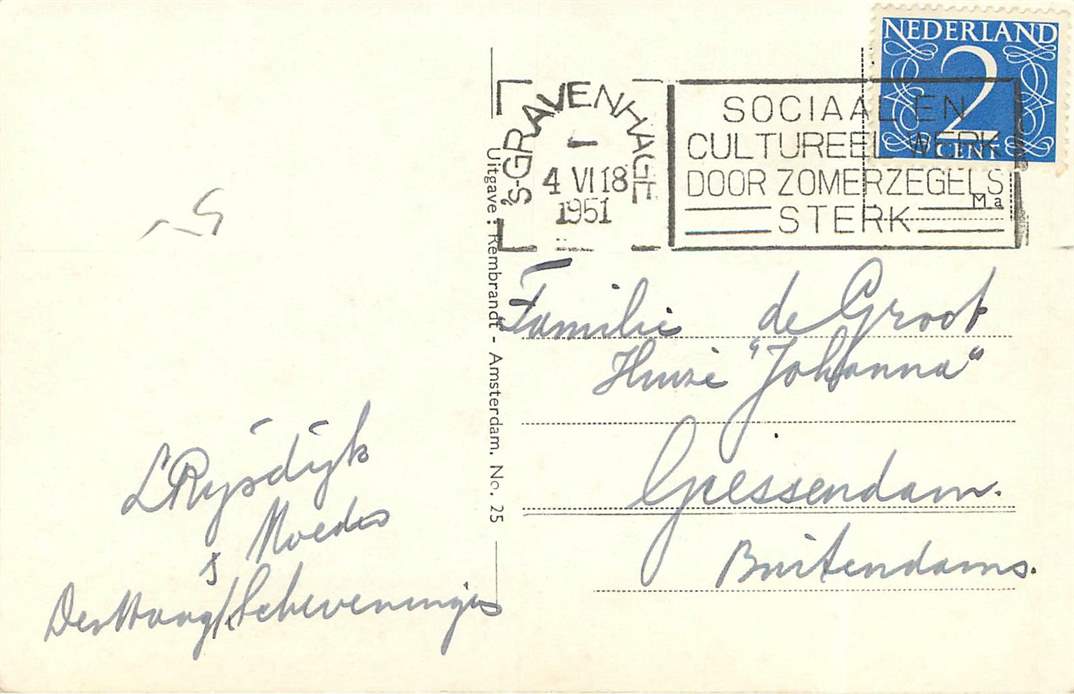 NEDERLAND
2
CENT
'S-GRAVENHAGE
4 VI 18
1951
SOCIAAL EN
CULTUREEL WERK
DOOR ZOMERZEGELS
STERK
Ma
Uitgave: Rembrandt - Amsterdam. No. 25
Familie de Groot
Huize "Johanna"
Giessendam.
Buitendams.
L Rijsdijk
Moeder
Den Haag/Scheveningen